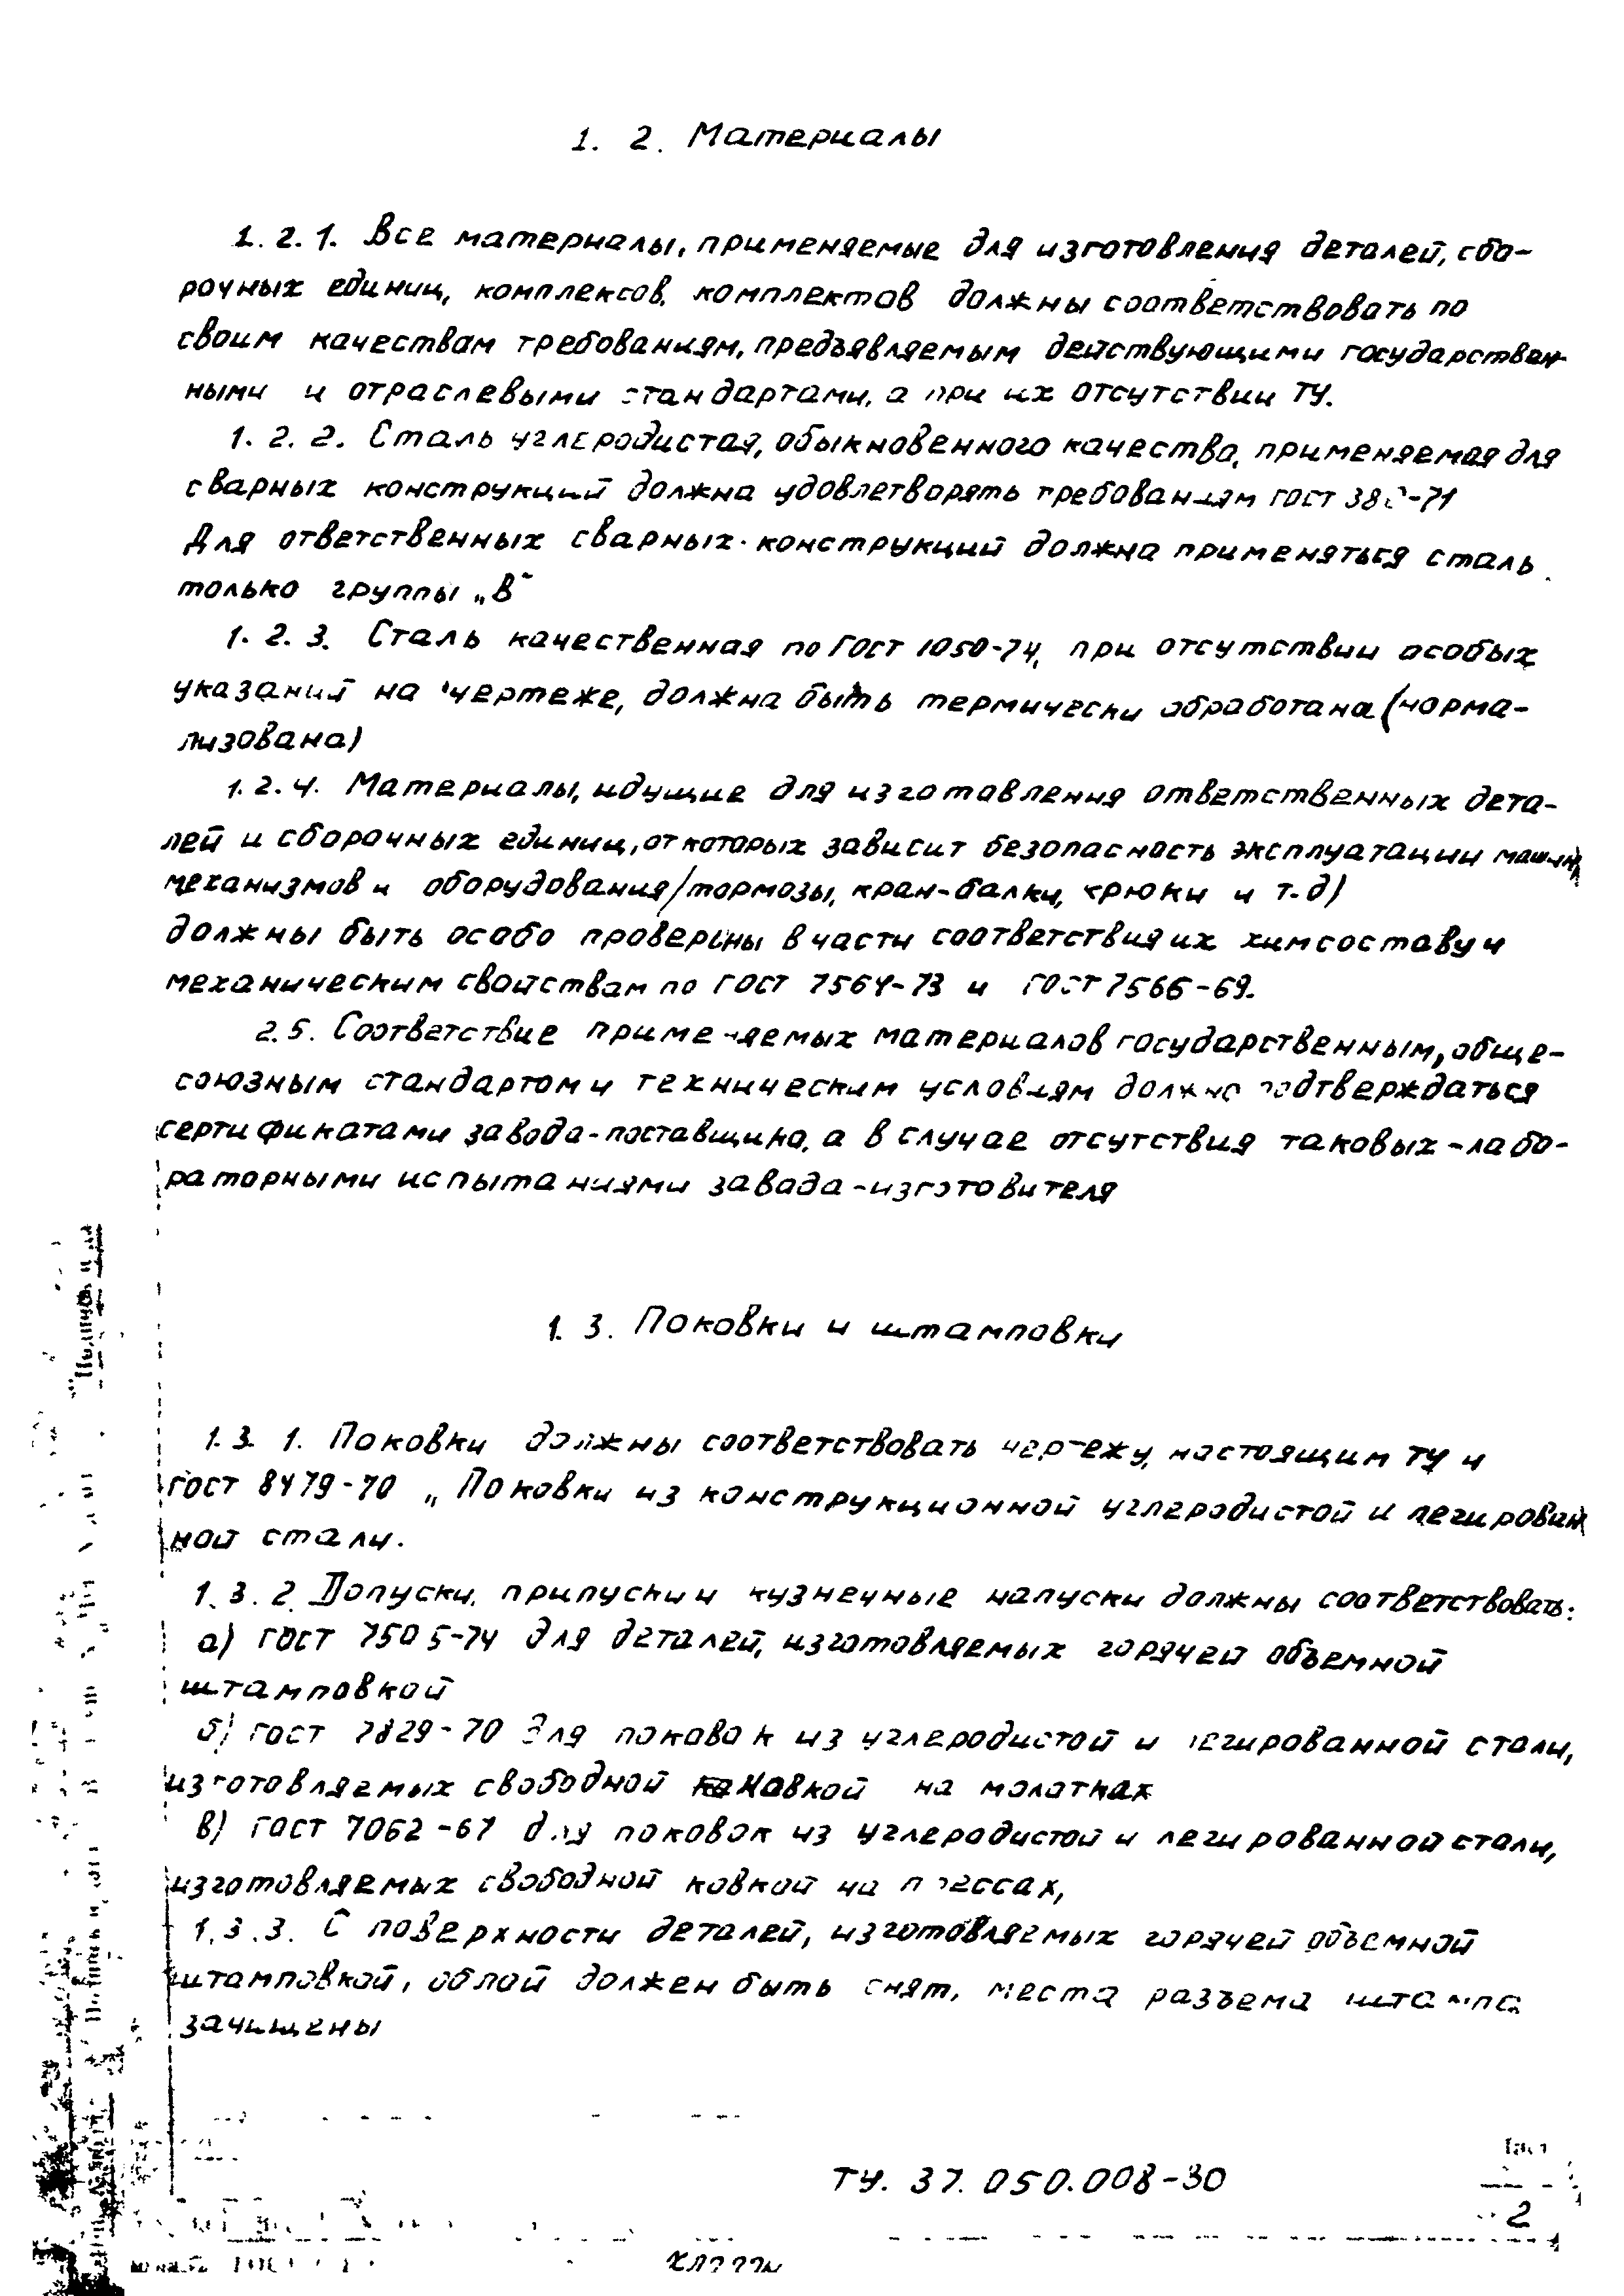 1. 2. Материалы
1. 2. 1. Все материалы, применяемые для изготовления деталей, сбо-
рочных единиц, комплексов, комплектов должны соответствовать по
своим качествам требованиям, предъявляемым действующими государствен-
ными и отраслевыми стандартами, а при их отсутствии ТУ.
1. 2. 2. Сталь углеродистая, обыкновенного качества, применяемая для
сварных конструкций должна удовлетворять требованиям ГОСТ 380-71
Для ответственных сварных конструкций должна применяться сталь
только группы „В"
1. 2. 3. Сталь качественная по ГОСТ 1050-74, при отсутствии особых
указаний на чертеже, должна быть термически обработана (норма-
лизована)
1. 2. 4. Материалы, идущие для изготовления ответственных дета-
лей и сборочных единиц, от которых зависит безопасность эксплуатации машин,
механизмов и оборудования /тормозы, кран-балки, крюки и т.д)
должны быть особо проверены в части соответствия их химсоставу и
механическим свойствам по ГОСТ 7564-73 и ГОСТ 7566-69.
2.5. Соответствие применяемых материалов государственным, обще-
союзным стандартом и техническим условиям должно подтверждаться
сертификатами завода-поставщика, а в случае отсутствия таковых - лабо-
раторными испытаниями завода-изготовителя
1. 3. Поковки и штамповки
1. 3. 1. Поковки должны соответствовать чертежу, настоящим ТУ и
ГОСТ 8479-70 „Поковки из конструкционной углеродистой и легирован
ной стали.
1. 3. 2. Допуски, припуски и кузнечные напуски должны соответствовать:
а) ГОСТ 7505-74 для деталей, изготовляемых горячей объемной
штамповкой
б) ГОСТ 7829-70 для поковок из углеродистой и легированной стали,
изготовляемых свободной ковкой на молотках
в) ГОСТ 7062-67 для поковок из углеродистой и легированной стали,
изготовляемых свободной ковкой на прессах,
1. 3. 3. С поверхности деталей, изготовляемых горячей объемной
штамповкой, облой должен быть снят, места разъема штампа
зачищены
ТУ. 37. 050.008-80
Лист
2